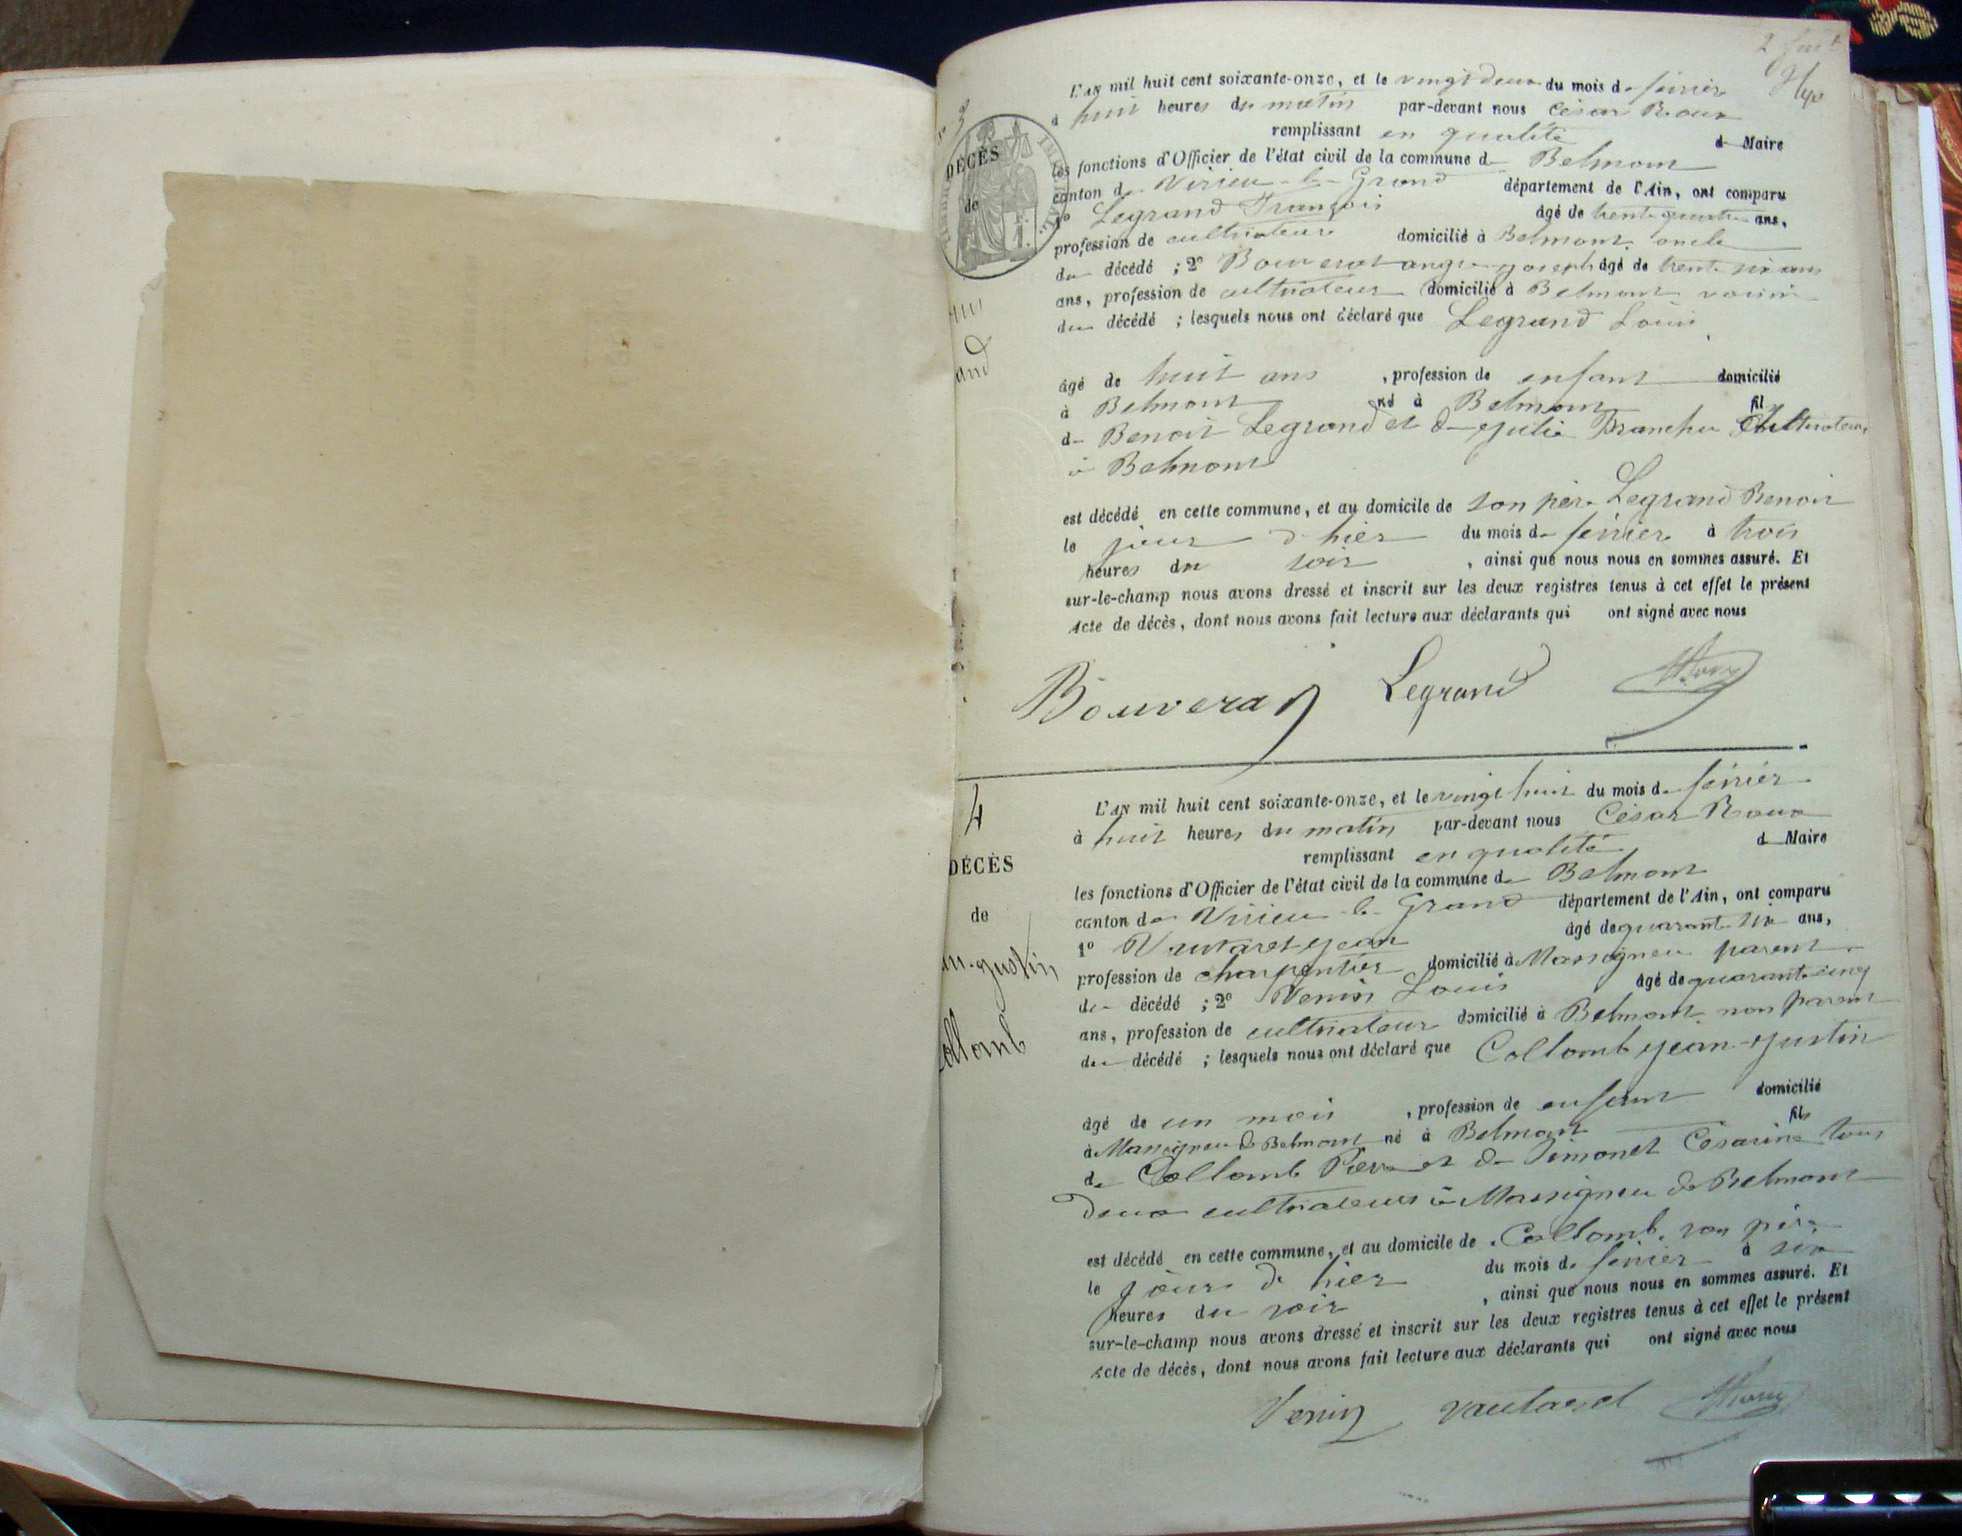 2
N° 3
DÉCÈS
de
L'AN mil huit cent soixante-onze, et le vingt deux du mois de février
à huit heures du matin par-devant nous César Roux
remplissant en qualité de Maire
les fonctions d'Officier de l'état civil de la commune de Belmont
canton de Virieu-le-Grand département de l'Ain, ont comparu
1° Legrand François âgé de trente quatre ans,
profession de cultivateur domicilié à Belmont oncle
du décédé ; 2° Bouverat ange joseph âgé de trente six ans
ans, profession de cultivateur domicilié à Belmont voisin
du décédé ; lesquels nous ont déclaré que Legrand Louis
and
âgé de huit ans , profession de enfant domicilié
à Belmont né à Belmont fil
de Benoit Legrand et de julie Cultivateurs
à Belmont
est décédé en cette commune, et au domicile de son père Legrand Benoit
le jour d'hier du mois de février à trois
heures du soir , ainsi que nous nous en sommes assuré. Et
sur-le-champ nous avons dressé et inscrit sur les deux registres tenus à cet effet le présent
Acte de décès, dont nous avons fait lecture aux déclarants qui ont signé avec nous
Bouverat Legrand Roux
4
DÉCÈS
de
an-justin
Collomb
L'AN mil huit cent soixante-onze, et le vingt huit du mois de février
à huit heures du matin par-devant nous César Roux
remplissant en qualité de Maire
les fonctions d'Officier de l'état civil de la commune de Belmont
canton de Virieu-le-Grand département de l'Ain, ont comparu
1° Vautaret jean âgé de quarante six ans,
profession de charpentier domicilié à Massigneu parent
du décédé ; 2° Venin Louis âgé de quarante cinq
ans, profession de cultivateur domicilié à Belmont non parent
du décédé ; lesquels nous ont déclaré que Collomb jean-justin
âgé de un mois , profession de enfant domicilié
à Massigneu de Belmont né à Belmont fils
de Collomb Pierre et de Simonet Césarine tous
deux cultivateurs à Massigneu de Belmont
est décédé en cette commune, et au domicile de Collomb son père
le jour de hier du mois de février à six
heures du soir , ainsi que nous nous en sommes assuré. Et
sur-le-champ nous avons dressé et inscrit sur les deux registres tenus à cet effet le présent
Acte de décès, dont nous avons fait lecture aux déclarants qui ont signé avec nous
Venin vautaret Roux